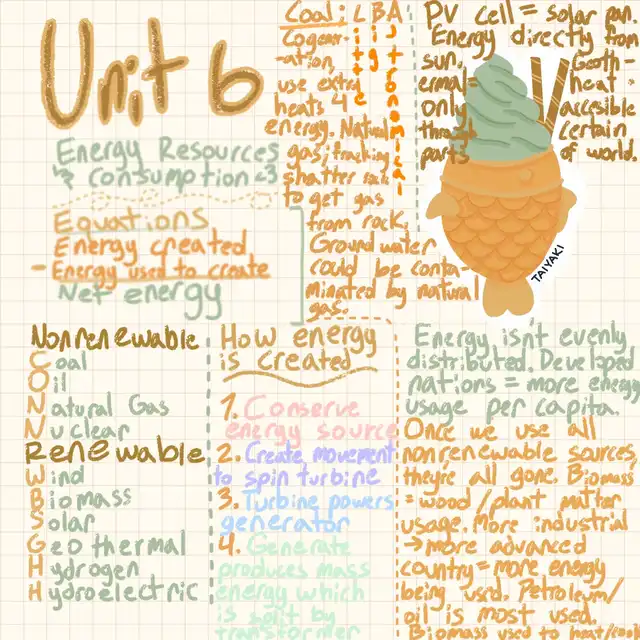 Unit 6
Energy Resources
& consumption <3
Equations
Energy created
- Energy used to create
Net energy
Coal: L B A
ittle
ig
stronomical
Cogener-
-ation,
use extra
heats 4
energy. Natural
gas; fracking
shatter rock
to get gas
from rock,
Ground water
could be conta-
minated by natural
gas.
PV cell = solar pan.
Energy directly from
sun, Geoth-
ermal= heat
only accesible
through certain
parts of world.
TAIYAKI
Nonrenewable
Coal
Oil
Natural Gas
Nuclear
Renewable
Wind
Biomass
Solar
Geothermal
Hydrogen
Hydroelectric
How energy
is created
1. Conserve
energy source
2. Create movement
to spin turbine
3. Turbine powers
generator
4. Generate
produces mass
energy which
is split by
transformer
Energy isn't evenly
distributed. Developed
nations = more energy
usage per capita.
Once we use all
nonrenewable sources,
they're all gone. Biomass
= wood/plant matter
usage. More industrial
→ more advanced
country = more energy
being used. Petroleum/
oil is most used.
Biomass used to heat/cook